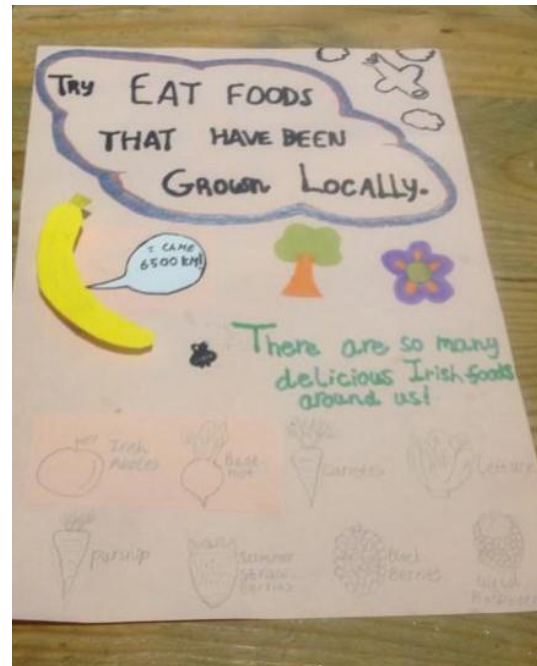 TRY EAT FOODS
THAT HAVE BEEN
GROWN LOCALLY.
I CAME
6500 KM!
There are so many
delicious Irish foods
around us!
Irish
Apples
Beet-
root
Carrots
Lettuce
parsnip
Summer
Straw-
berries
Black
Berries